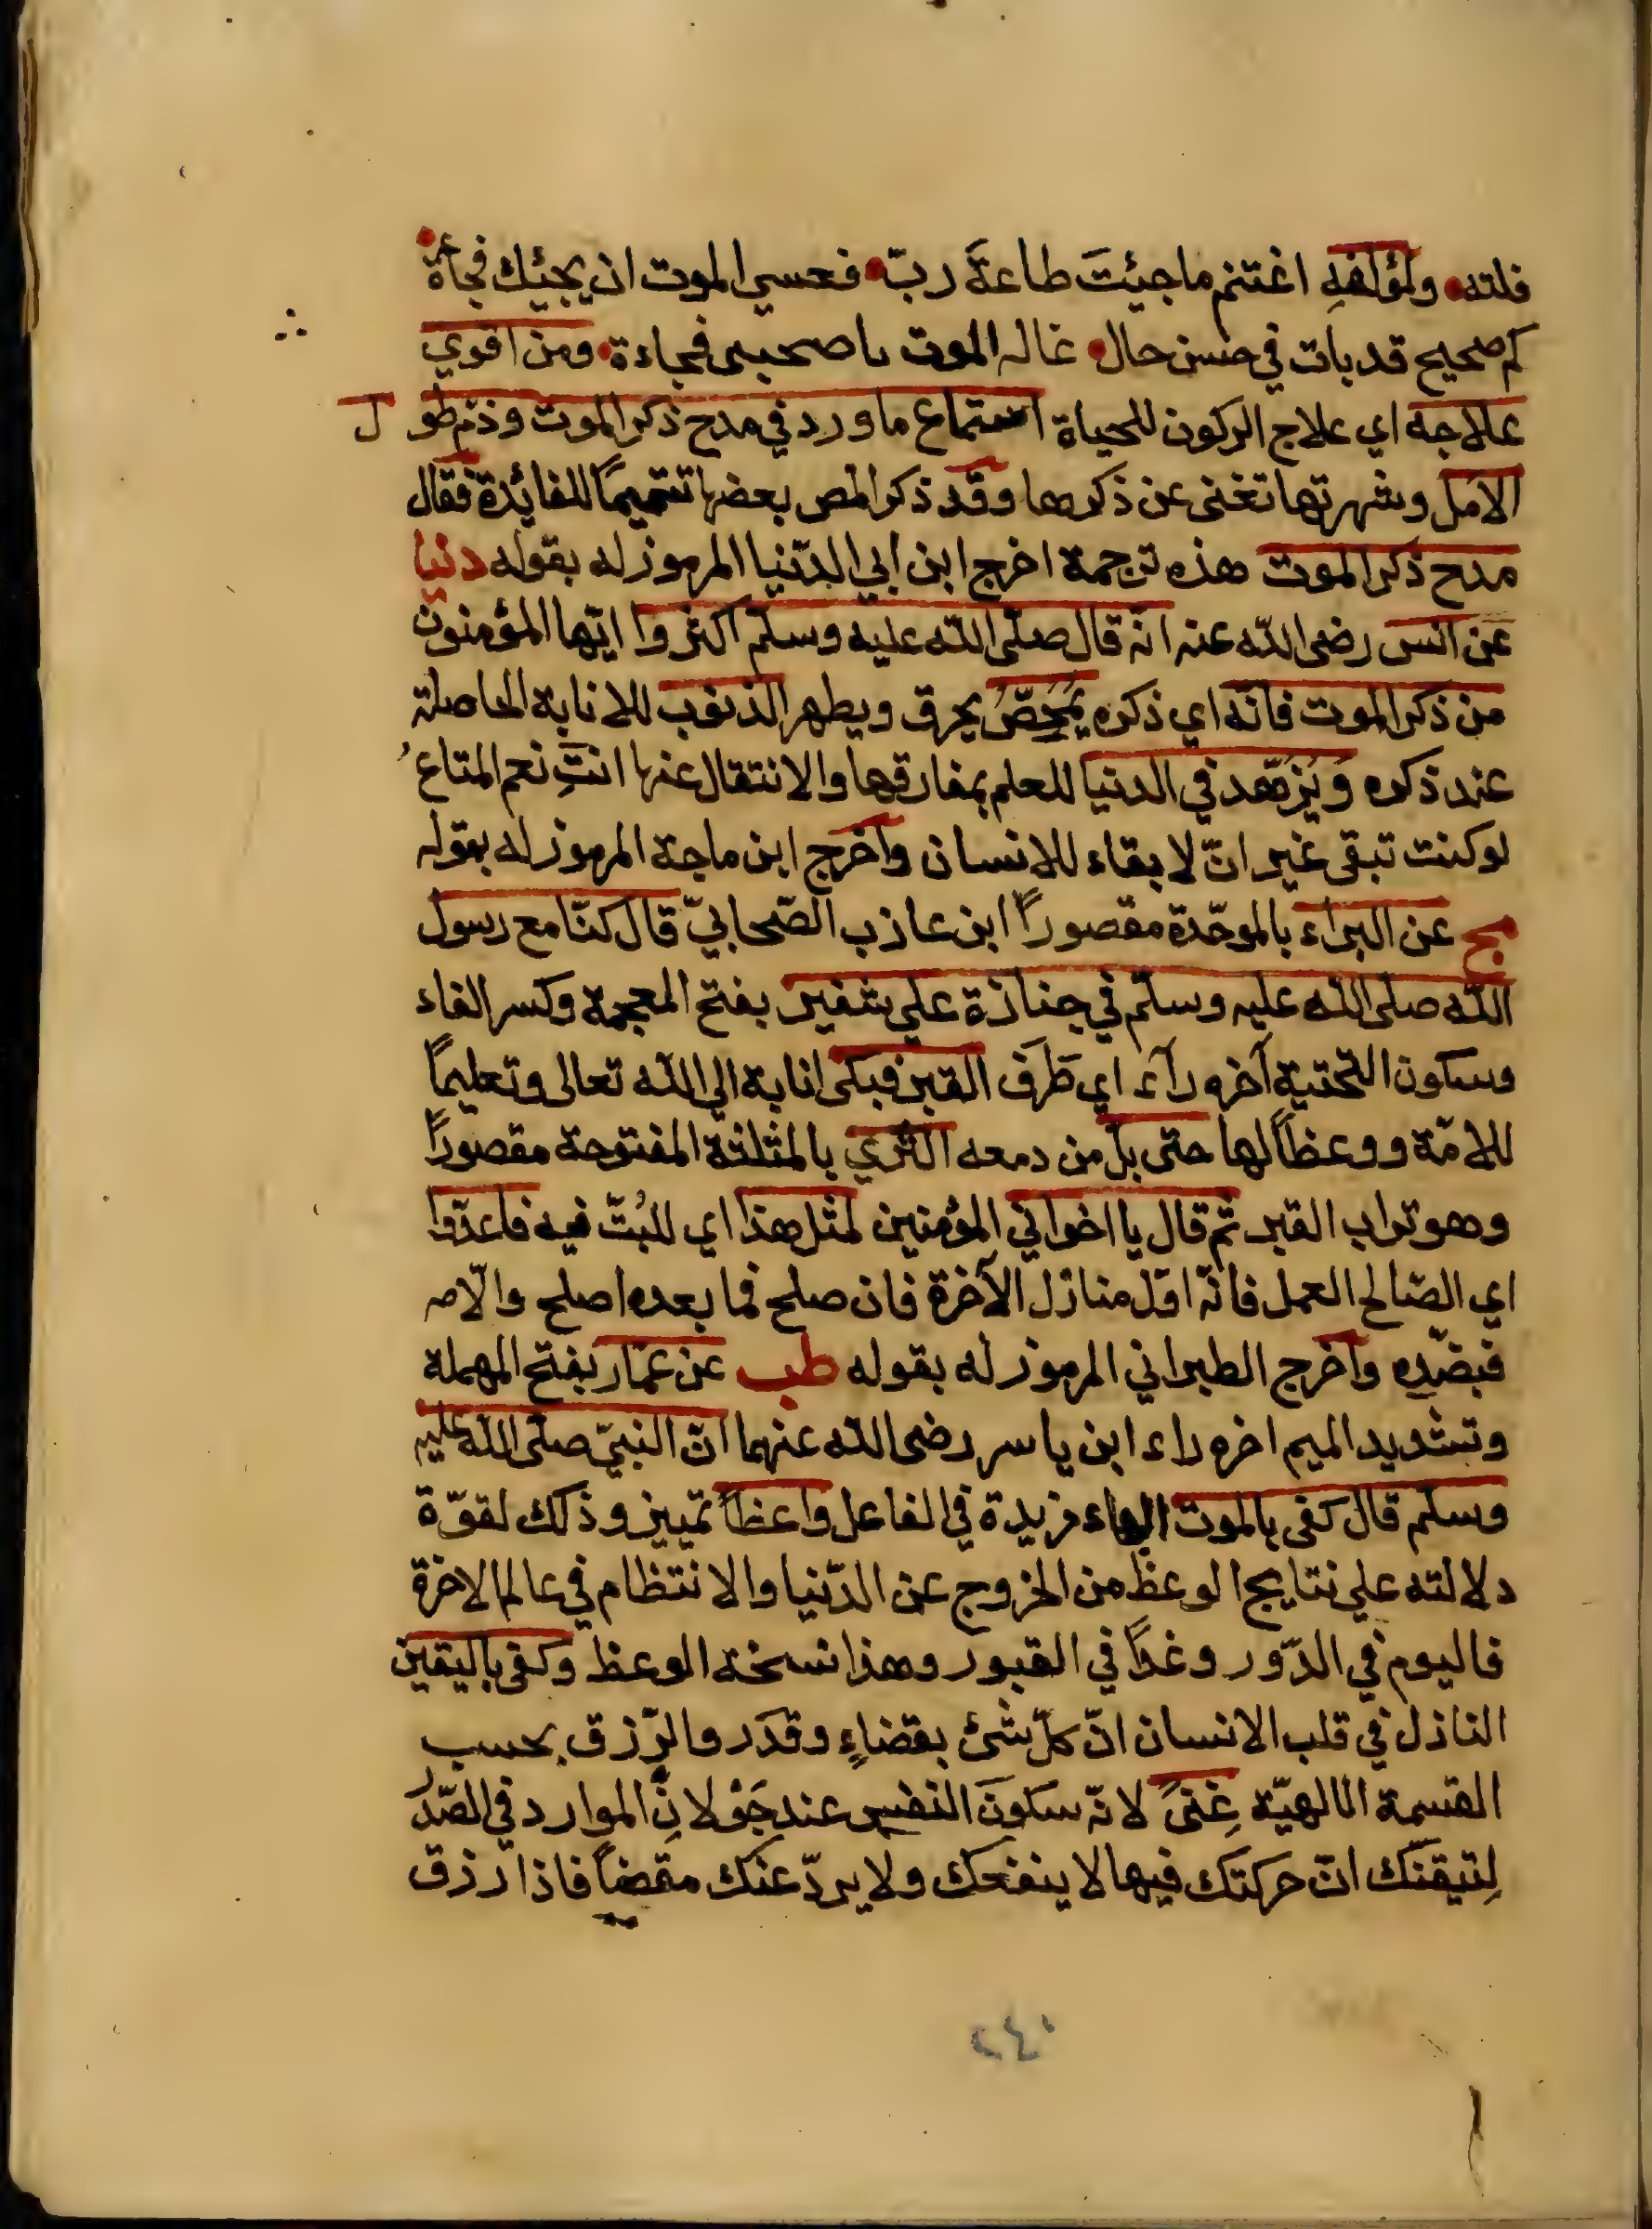 فلته ولمؤلفهِ اغتنم ما جيئتَ طاعةَ ربّ فعسي الموت ان يجيئك فجأة
كم صحيح قد بات في حسن حال غاله الموت يا صحيبي فجاءة ومن اقوي
علاجه اي علاج الركون للحياة استماع ما ورد في مدح ذكر الموت وذم طول
الامل وشهرتها تغنى عن ذكرها وقد ذكر المص بعضها تتميمًا للفائدة فقال
مدح ذكر الموت هذه ترجمة اخرج ابن ابي الدّنيا المرموز له بقوله دنيا
عن انس رضى اللّه عنه انّه قال صلّى اللّه عليه وسلّم اكثروا ايّها المؤمنون
من ذكر الموت فانّه اي ذكره يُمَحِّصُ يحرق ويطهر الذنوب للانابة الحاصلة
عند ذكره ويُزَهّد في الدنيا للعلم بمفارقوها والانتقال عنها انتِ نعم المتاعُ
لو كنت تبقى غير انّ لا بقاء للانسان واخرج ابن ماجة المرموز له بقوله
مج عن البراء بالموحّدة مقصوراً ابن عازب الصّحابيّ قال كنّا مع رسول
اللّه صلى اللّه عليه وسلّم في جنازة علي شفير بفتح المعجمة وكسر الفاء
وسكون التحتية آخره رآء اي طَرَف القبر فبكى انابة الي اللّه تعالى وتعليماً
للامّة ووعظاً لها حتى بلّ من دمعه الثري بالمثلثة المفتوحة مقصوراً
وهو تراب القبر ثم قال يا اخواني المؤمنين لمثل هذا اي للبُثّ فيه فاعدّوا
اي الصّالح العمل فانّه اوّل منازل الآخرة فان صلح فما بعده اصلح والّا مه
فبضّده واخرج الطبراني المرموز له بقوله طب عن عمّار بفتح المهملة
وتشديد الميم اخره راء ابن ياسر رضى اللّه عنهما انّ النبيّ صلّى اللّه عليه
وسلم قال كفى بالموت الباء مزيدة في الفاعل واعظاً تمييز وذلك لقوّة
دلالته علي نتايج الوعظ من الخروج عن الدّنيا والانتظام في عالم الاخرة
فاليوم في الدّور وغداً في القبور وهذا نسخة الوعظ وكفى باليقين
النازل في قلب الانسان انّ كلّ شئ بقضاءٍ وقدَر والرّزق بحسب
القسمة الالهيّة غِنىً لانّه سكونَ النفس عند جَوْلانِ الموارد في الصّدر
لِتيقنّك انّ حركتك فيها لا ينفعك ولا يردّ عنك مقضياً فاذا رزق
٢٤٠